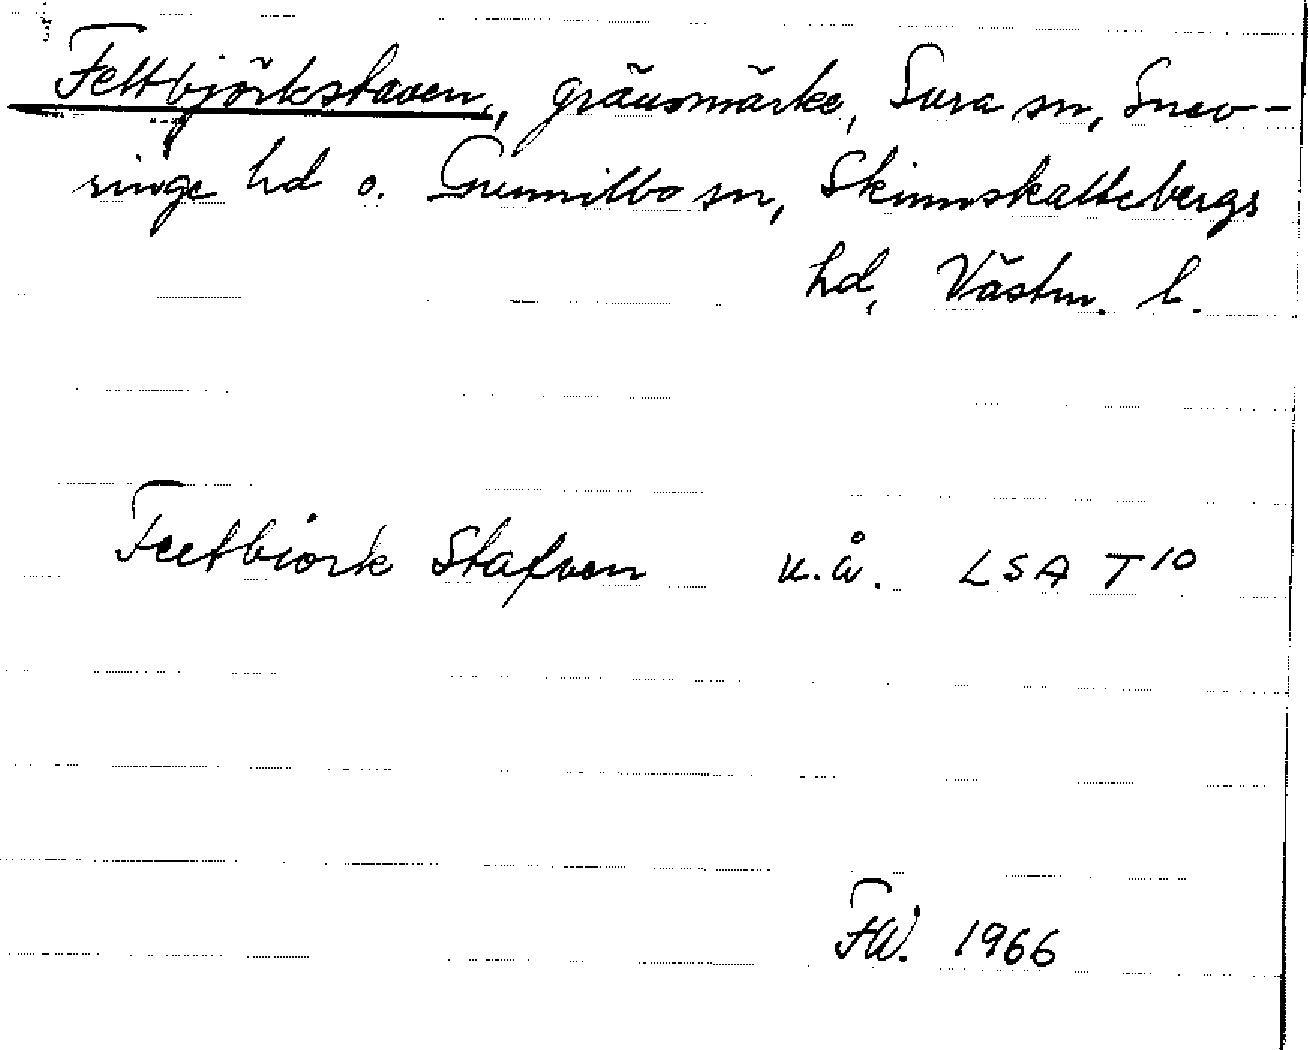 Fettbjörkstaven, gränsmärke, Sura sn, Snev-
ringe hd o. Gunnilbo sn, Skinnskattebergs
hd, Västm. l.
Feetbiörk Stafven u.å. LSA T10
FW. 1966